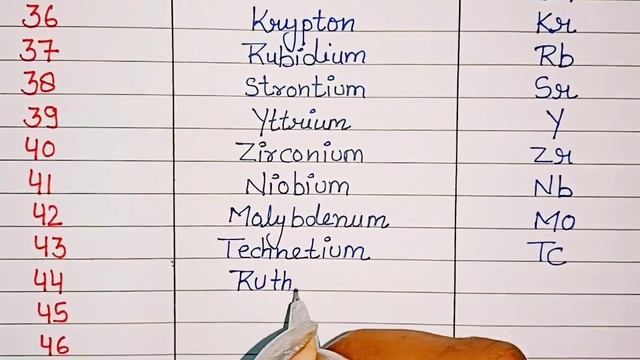 36 Krypton Kr
37 Rubidium Rb
38 Strontium Sr
39 Yttrium Y
40 Zirconium Zr
41 Niobium Nb
42 Molybdenum Mo
43 Technetium Tc
44 Ruth
45
46